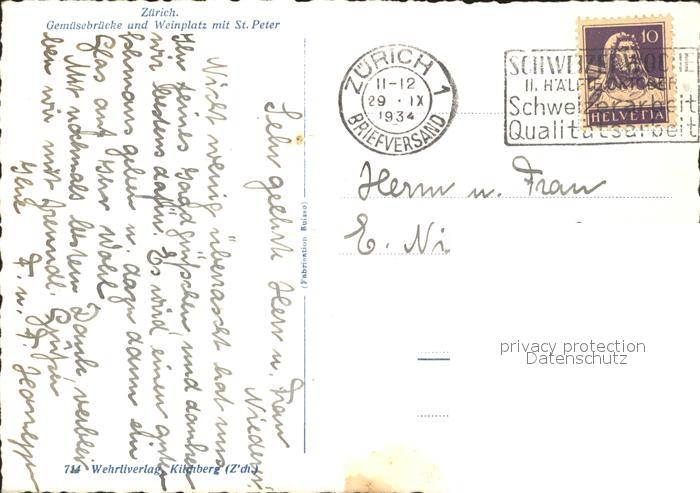 Zürich.
Gemüsebrücke und Weinplatz mit St. Peter
Sehr geehrte Herr u. Frau
Nieder
Nicht wenig überrascht hat uns
Ihr feines Jagdgrüsschen und danken
wir bestens dafür. Es wird einen guten
Schmaus geben u. dazu dann ein
Glas auf Ihr Wohl
Mit nochmals bestem Dank, verblei-
ben wir mit freundl. Grüßen
Ihre
F. u. F.
(Fabrication Suisse)
714 Wehrliverlag, Kilchberg (Z'ch.)
ZÜRICH 1
11-12
29 · IX
1934
BRIEFVERSAND
SCHWEIZERWOCHE
II. HÄLFTE OKTOBER
Schweizerarbeit
Qualitätsarbeit
10
HELVETIA
Herrn u. Frau
E. Ni
privacy protection
Datenschutz